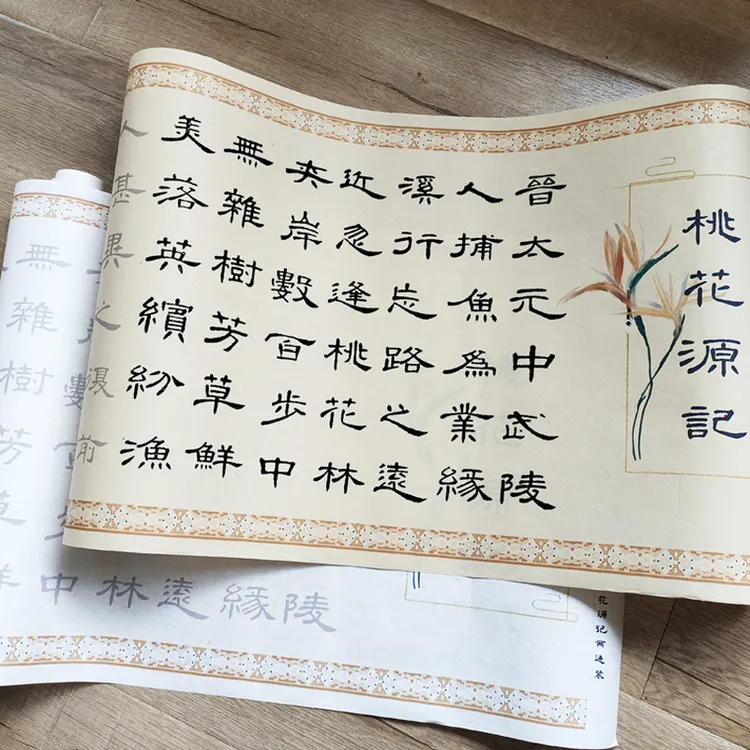 桃花源記
晉太元中武陵
人捕魚爲業緣
溪行忘路之遠
近忽逢桃花林
夾岸數百步中
無雜樹芳草鮮
美落英繽紛漁
人甚異之復前
花源记
陵
緣
遠
林
數百步中
無雜樹芳草鮮